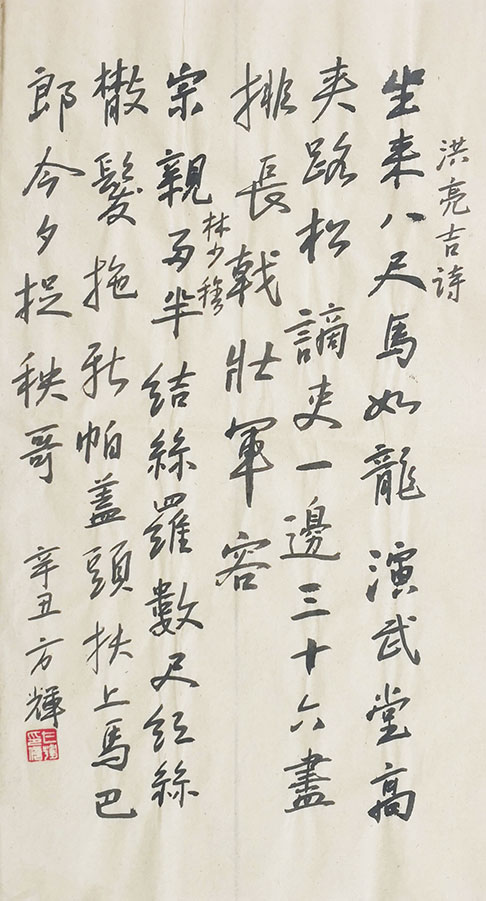 洪亮吉詩
坐來八尺馬如龍演武堂高
夾路松謫吏一邊三十六盡
排長戟壯軍容
林少穆
宗親多半結絲羅數尺紅絲
散髮拖新帕蓋頭扶上馬巴
郎今夕捉秧哥
辛丑方輝